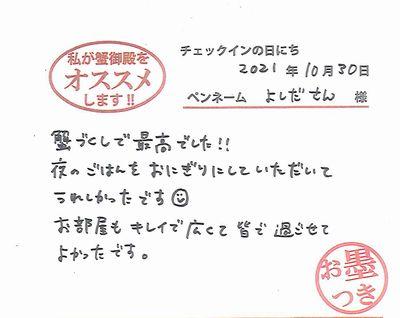 私が蟹御殿を
オススメ
します!!
チェックインの日にち
2021年10月30日
ペンネーム よしだせん 様
蟹づくしで最高でした!!
夜のごはんをおにぎりにしていただいて
うれしかったです☺
お部屋もキレイで広くて皆で過ごせて
よかったです。
お墨
つき